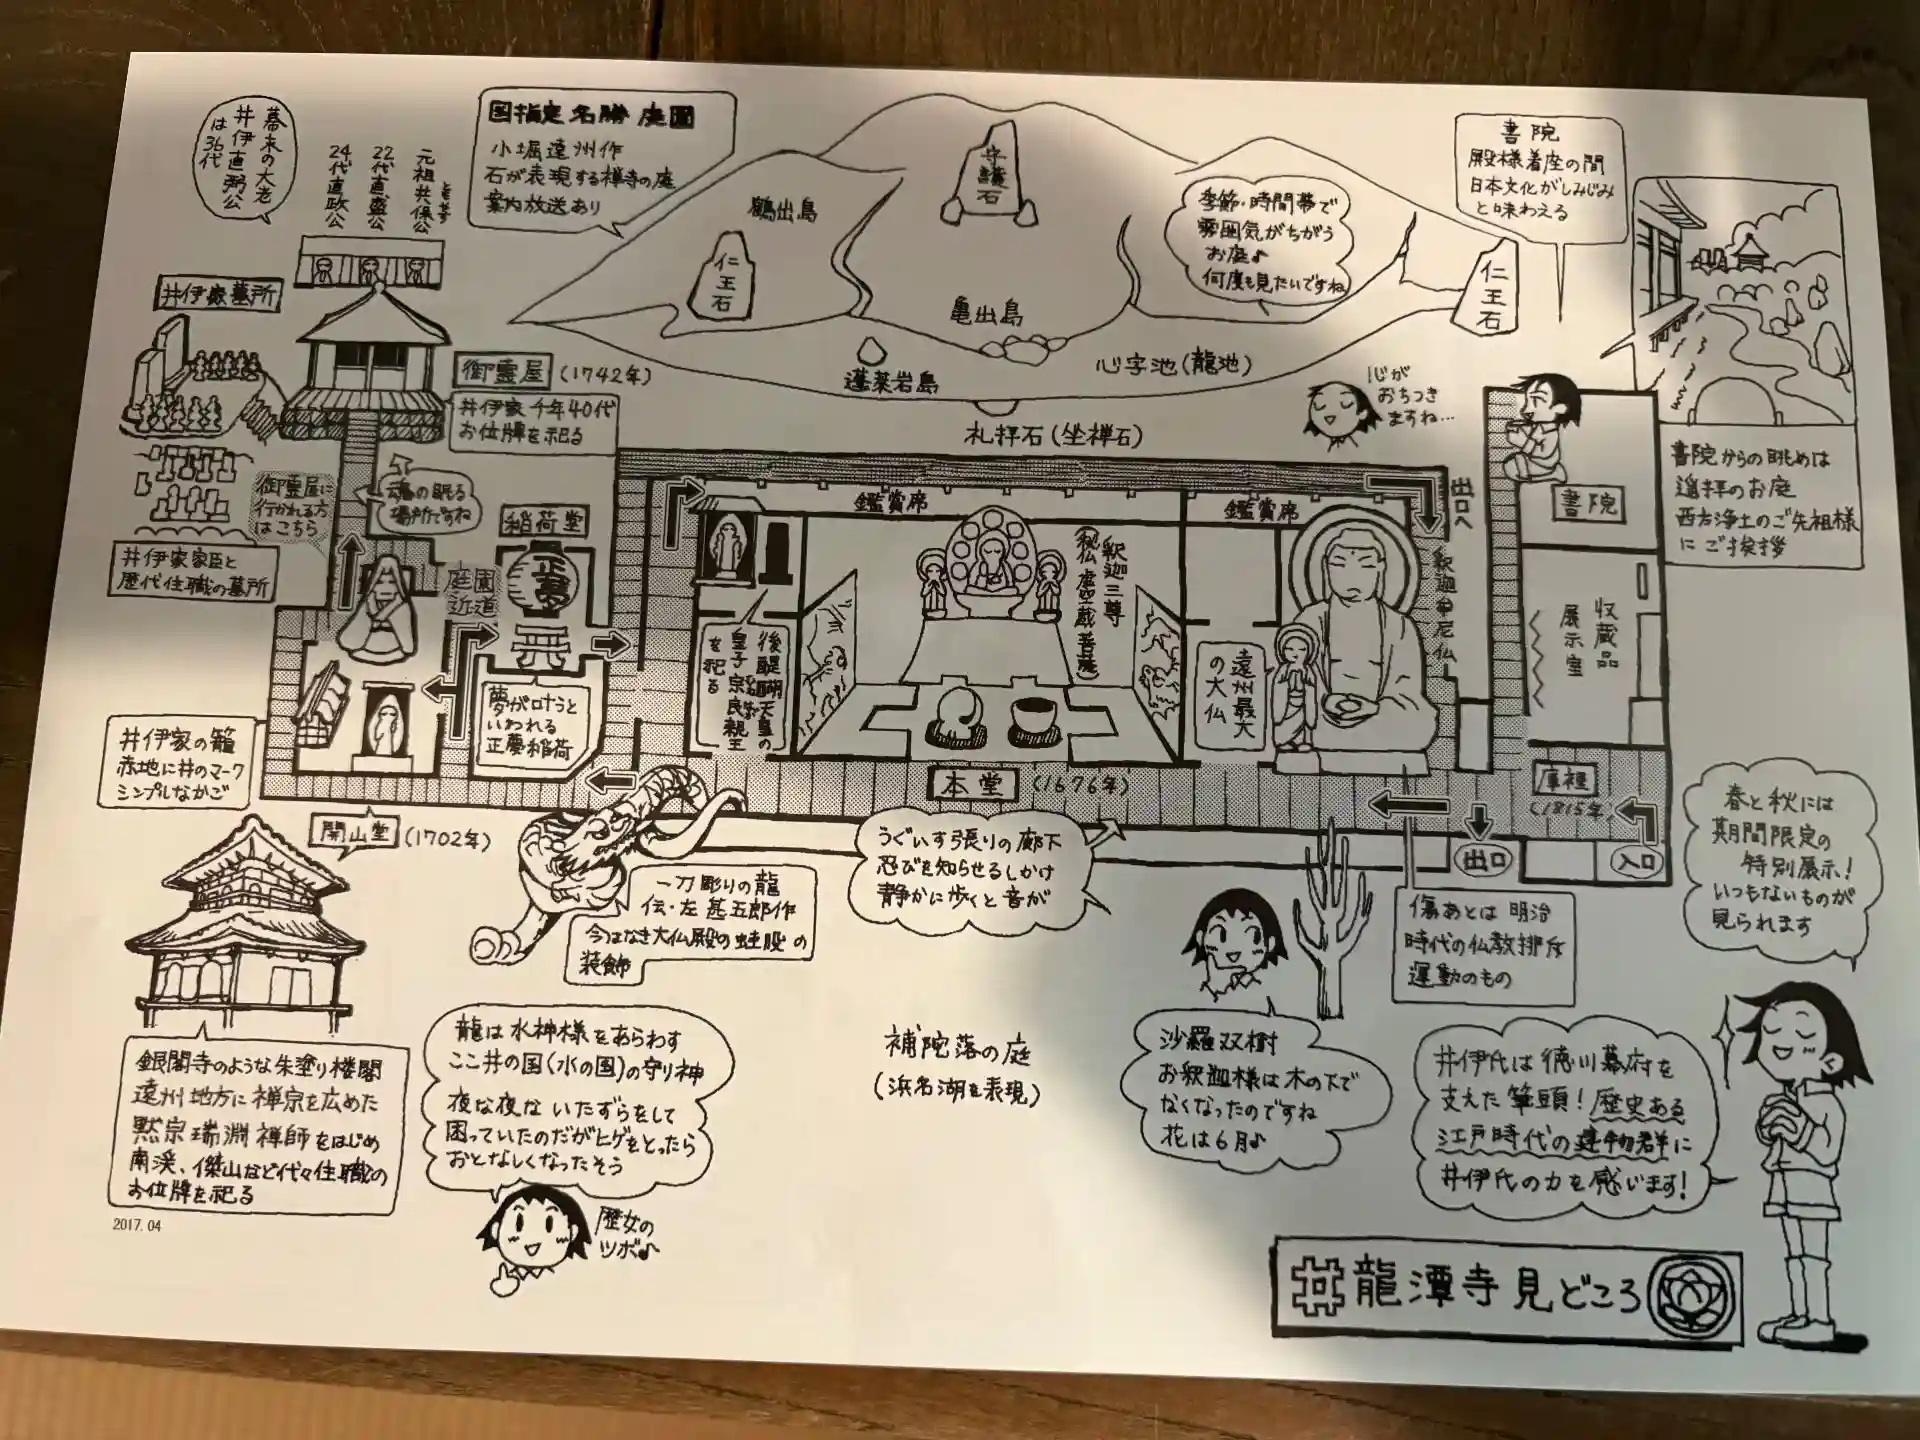 幕末の大老
井伊直弼公
は36代
元祖共保公
ともやす
22代直盛公
24代直政公
国指定名勝庭園
小堀遠州作
石が表現する禅寺の庭
案内放送あり
鶴出島
守護石
仁王石
亀出島
季節・時間帯で
雰囲気がちがう
お庭♪
何度も見たいですね
仁王石
蓬莱岩島
心字池(龍池)
礼拝石(坐禅石)
心が
おちつき
ますね…
書院
殿様着座の間
日本文化がしみじみ
と味わえる
書院からの眺めは
遥拝のお庭
西方浄土のご先祖様
にご挨拶
井伊家墓所
御霊屋(1742年)
井伊家千年40代
お位牌を祀る
御霊屋に
行かれる方
はこちら
魂の眠る
場所ですね
井伊家家臣と
歴代住職の墓所
稲荷堂
正夢
庭園
近道
夢が叶うと
いわれる
正夢稲荷
鑑賞席
鑑賞席
出口へ
後醍醐天皇の
皇子宗良親王
を祀る
釈迦三尊
(秘仏虚空蔵菩薩)
遠州最大
の大仏
釈迦牟尼仏
書院
収蔵品
展示室
庫裡
(1815年)
入口
出口
本堂(1676年)
井伊家の籠
赤地に井のマーク
シンプルなかご
開山堂(1702年)
一刀彫りの龍
伝・左甚五郎作
今はなき大仏殿の蛙股の
装飾
うぐいす張りの廊下
忍びを知らせるしかけ
静かに歩くと音が
傷あとは明治
時代の仏教排斥
運動のもの
春と秋には
期間限定の
特別展示!
いつもないものが
見られます
銀閣寺のような朱塗り楼閣
遠州地方に禅宗を広めた
黙宗瑞淵禅師をはじめ
南渓、傑山など代々住職の
お位牌を祀る
2017.04
龍は水神様をあらわす
ここ井の国(水の国)の守り神
夜な夜ないたずらをして
困っていたのだがヒゲをとったら
おとなしくなったそう
歴女の
ツボ♪
補陀落の庭
(浜名湖を表現)
沙羅双樹
お釈迦様は木の下で
なくなったのですね
花は6月♪
井伊氏は徳川幕府を
支えた筆頭!歴史ある
江戸時代の建物群に
井伊氏の力を感じます!
井龍潭寺見どころ